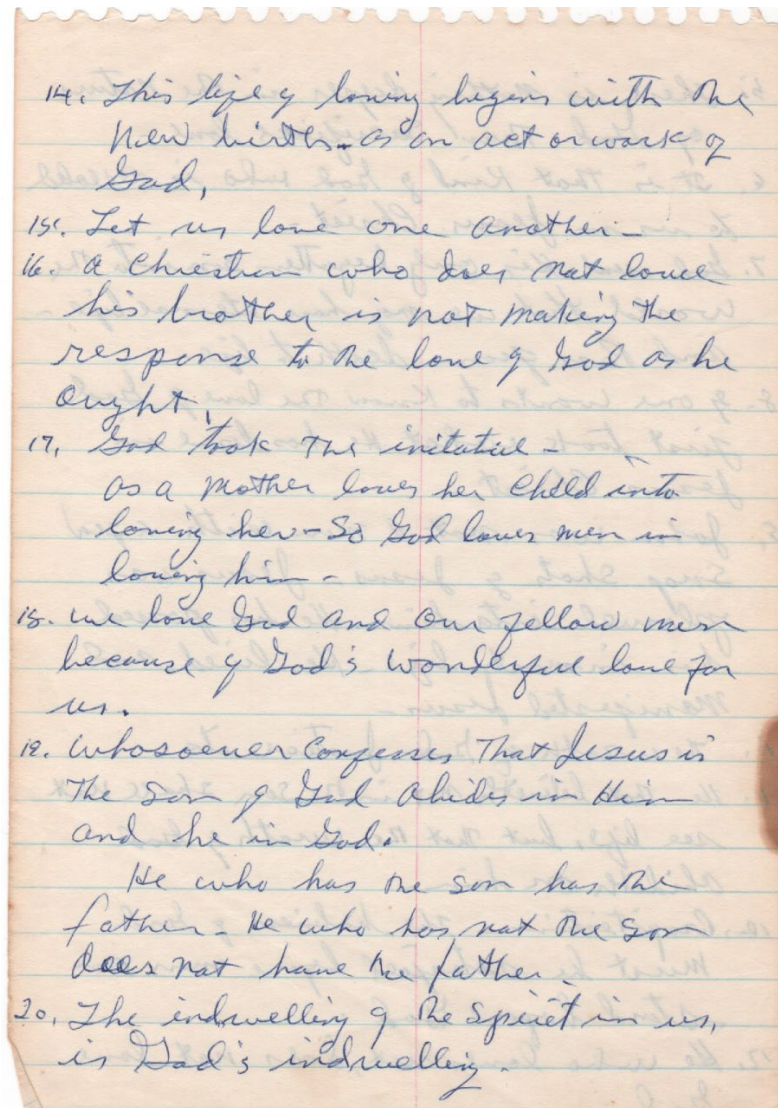 14. This life of loving begins with the
New birth - as an act or work of
God,
15. Let us love one another -
16. A Christian who does not love
his brother is not making the
response to the love of God as he
ought.
17. God took the initatial -
as a mother loves her child into
loving her - So God loves men in
loving him -
18. we love God and our fellow men
because of God's wonderful love for
us.
19. Whosoever Confesses That Jesus is
The Son of God Abides in Him
and he in God.
He who has the son has the
father - He who has not the son
does not have the father.
20. The indwelling of the Spirit in us,
is God's indwelling.